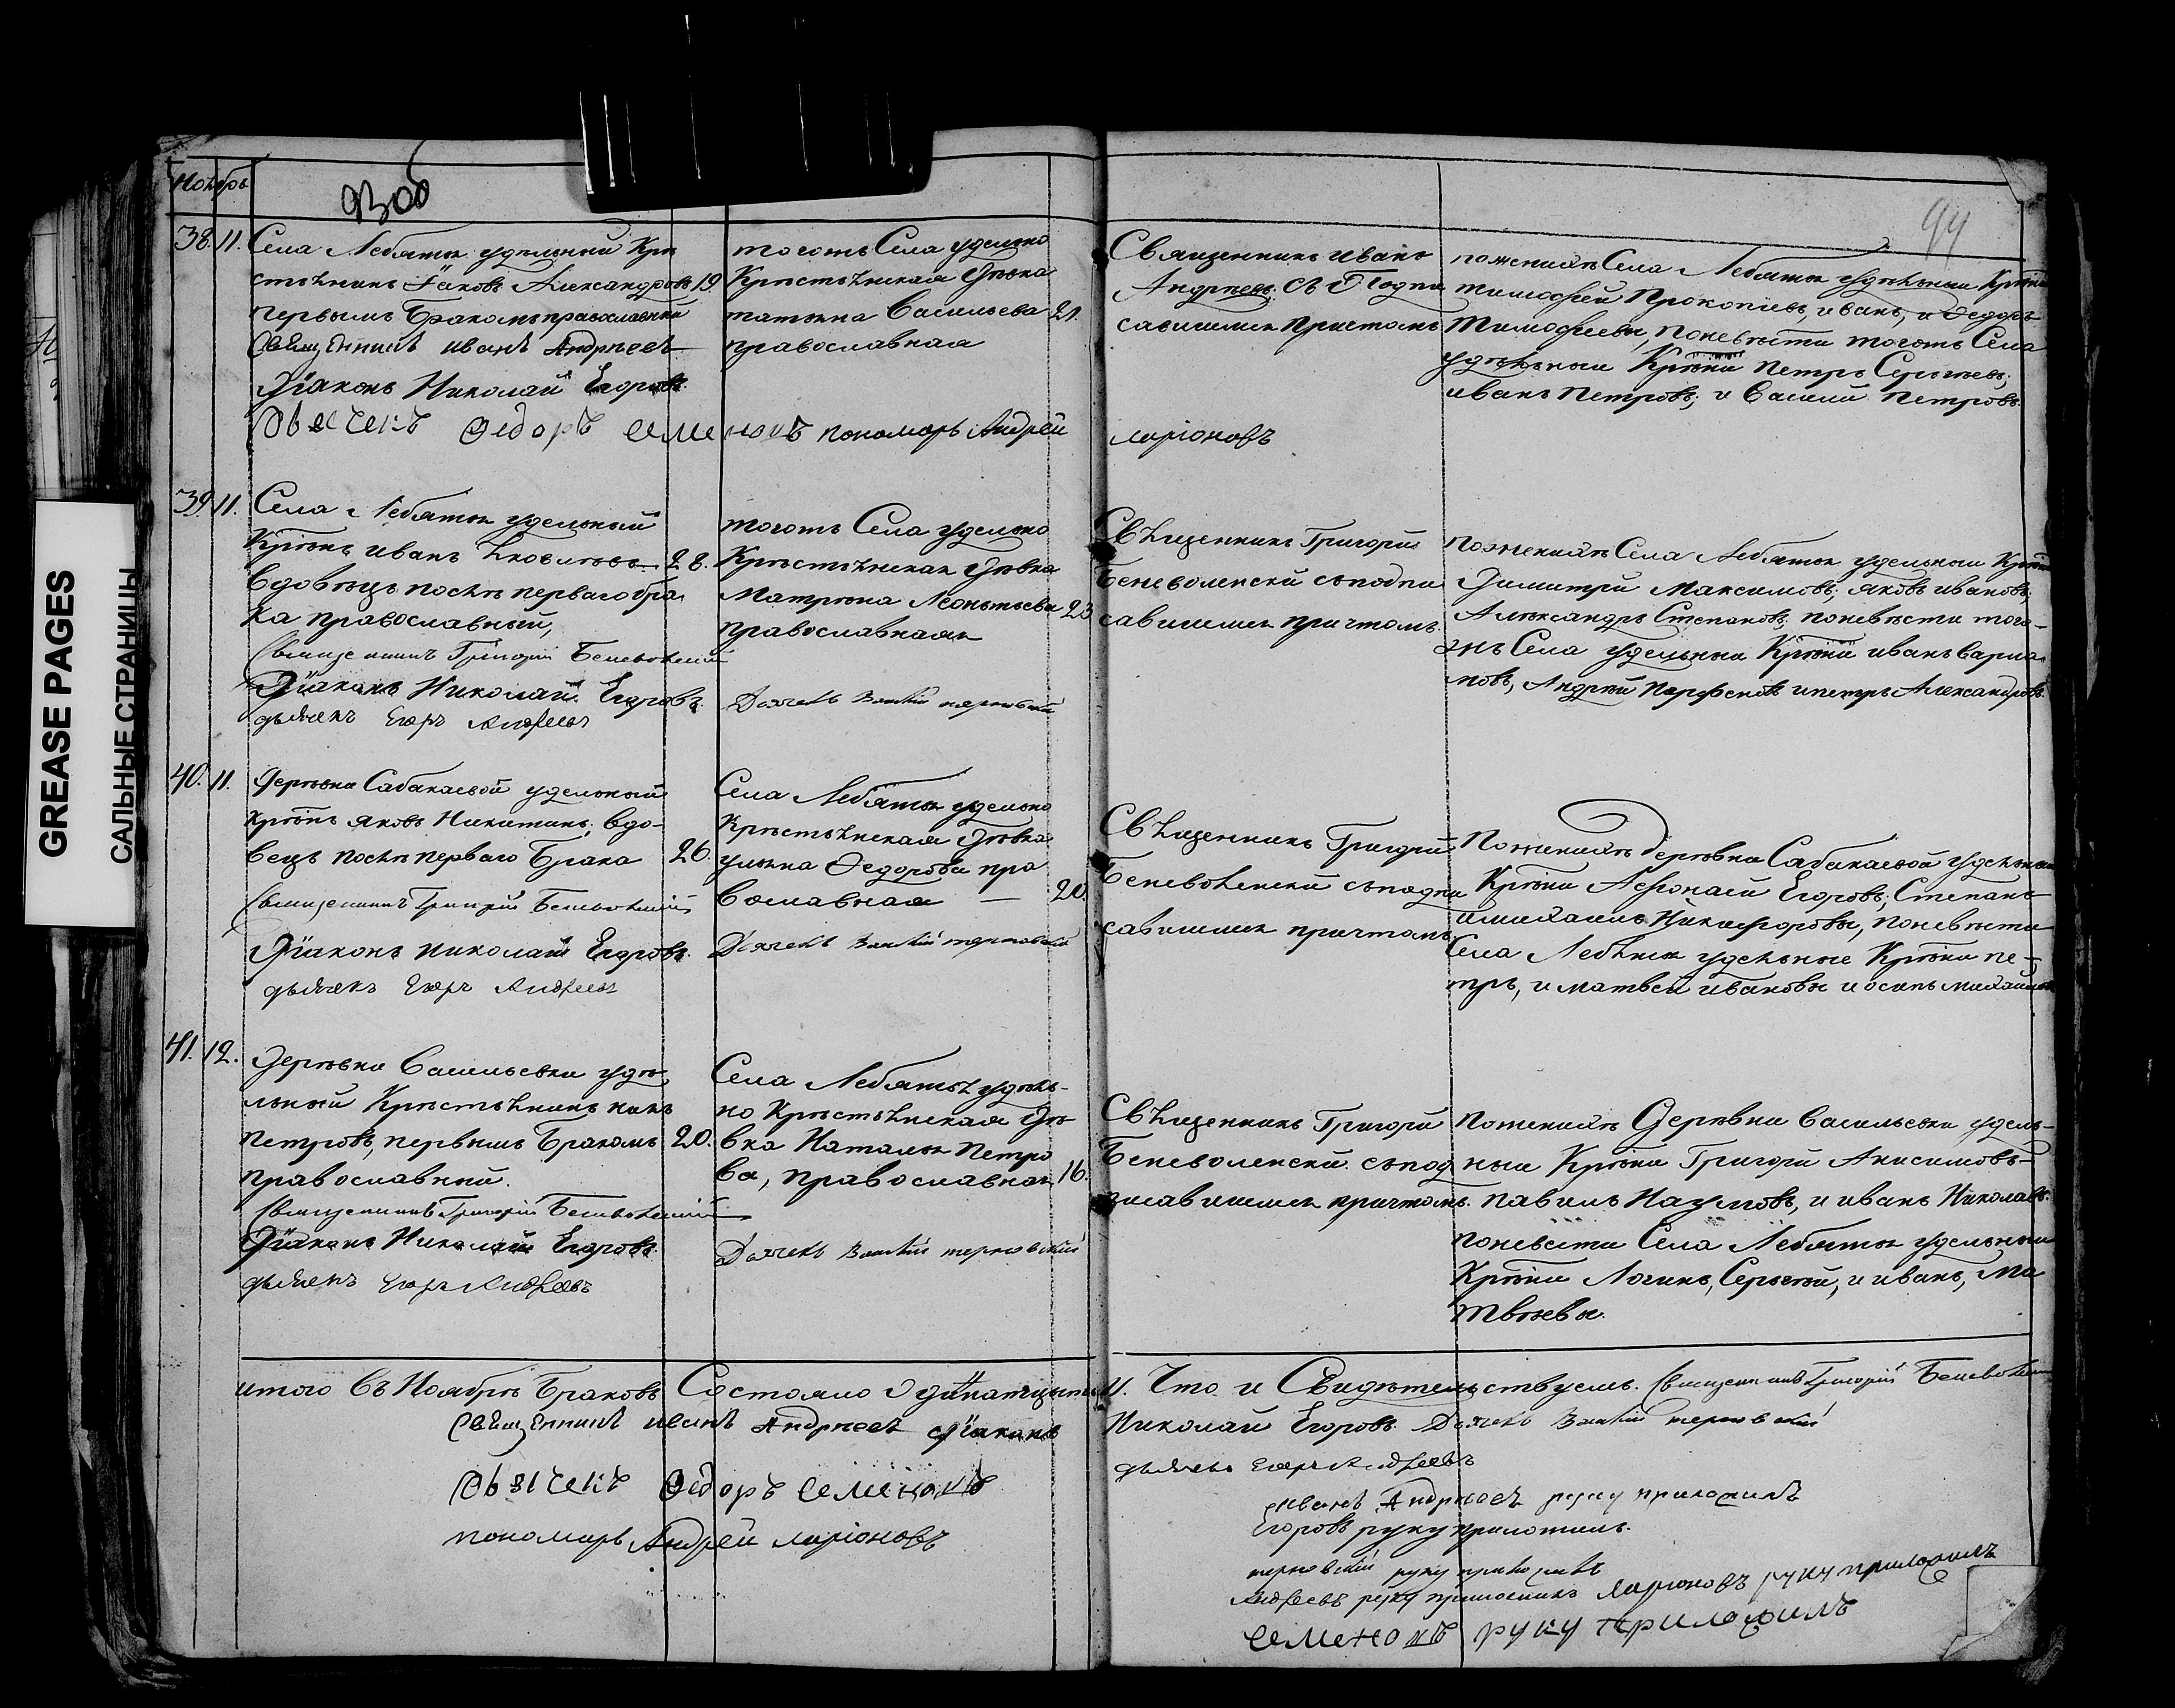 GREASE PAGES
САЛЬНЫЕ СТРАНИЦЫ
Ноябрь
94
38. 11. Села Лебяжья удѣльный Кре
стьѣнинъ Яковъ Александровъ 19.
первымъ бракомъ православный
Свѣщенникъ иванъ Андреевъ
Діаконъ Николай Егоровъ.
Дьячекъ Федоръ Семеновъ пономарь Андрей
тогожъ Села удельно
Крестьѣнская Девка
татьяна Васильева 21.
православная
Священникъ иванъ
Андреевъ съ Подпи
савшимся причтомъ
ларіоновъ
пожениhѣ Села Лебяжья удѣльныи Крѣни
тимофей Прокопіевъ, иванъ, и Федоръ
Тимофеевы, поневѣсти тогожъ Села
удѣльныи Крѣни Петръ Сергѣевъ,
иванъ Петровъ, и Василий Петровъ.
39. 11. Села Лебяжья удельный
Крѣнъ иванъ ѣковлевъ 28.
вдовецъ послѣ перваго бра
ка православный,
Священникъ Григорій Беневоленскій
Діаконъ Николай Егоровъ.
дьячекъ Егоръ Андреевъ
тогожъ Села удельно
Крестьѣнская Девка
Матрена Леонтьева 23
православная
Дьячекъ Василій терновскій
Свѣщенникъ Григорій
Беневоленскій съподпи
савшимся причтомъ.
поженихѣ Села Лебяжья удельныи Крѣни
Димитрій Максимовъ, яковъ ивановъ,
Александръ Степановъ, поневѣсти того-
жъ Села удельныи Крѣни иванъ Варла
мовъ, Андрей Парфеновъ и петръ Александровъ.
40. 11. Деревни Сабакаевой удельный
крѣнъ яковъ Никитинъ, вдо-
вецъ послѣ перваго брака 26.
Священникъ Григорій Беневоленскій
Діаконъ Николай Егоровъ.
дьячекъ Егоръ Андреевъ
Села Лебяжья удельно
Крестьѣнская Девка
ульяна Федорова пра
вославная — 20.
Дьячекъ Василій терновскій
Свѣщенникъ Григорій
Беневоленскій съподпи
савшимся причтомъ
Поженихѣ деревни Сабакаевой удельныи
Крѣни Афонасій Егоровъ, Степанъ
имихаилъ Никифоровы, поневѣсти
Села Лебѣжья удельные Крѣни пе-
тръ, и матвей ивановы и осипъ михайловъ
41. 12. Деревни Васильевки удѣ
льный Крестьѣнинъ
петровъ, первымъ бракомъ 20.
православный.
Священникъ Григорій Беневоленскій
Діаконъ Николай Егоровъ.
дьячекъ Егоръ Андреевъ
Села Лебяжьѣ удѣль-
но Крестьѣнская Де
вка Наталья Петро
ва, православная 16.
Дьячекъ Василій терновскій
Свѣщенникъ Григорій
Беневоленскій съпод
писавшимся причтомъ.
поженихѣ Деревни Васильевки удель-
ныи Крѣни Григорій Анисимовъ
павилъ Наумовъ, и иванъ Николаевъ.
поневѣсти Села Лебяжья удельныи
Крѣни Логинъ, Сергѣй, и иванъ, Ма
твѣевы.
итого въ Ноябрѣ браковъ Состояло Одинатцыть 11. Что и Свидѣтельствуемъ. Священникъ Григорій Беневоленскій
Свѣщенникъ иванъ Андреевъ Діаконъ Николай Егоровъ Дьячекъ Василій терновскій
дьячекъ Егоръ Андреевъ
Дьячекъ Федоръ Семеновъ
пономарь Андрей ларіоновъ
иванъ Андреевъ руку приложилъ
Егоровъ руку приложилъ.
терновскій руку приложилъ
Андреевъ руку приложилъ ларіоновъ руку приложилъ
Семеновъ руку приложилъ